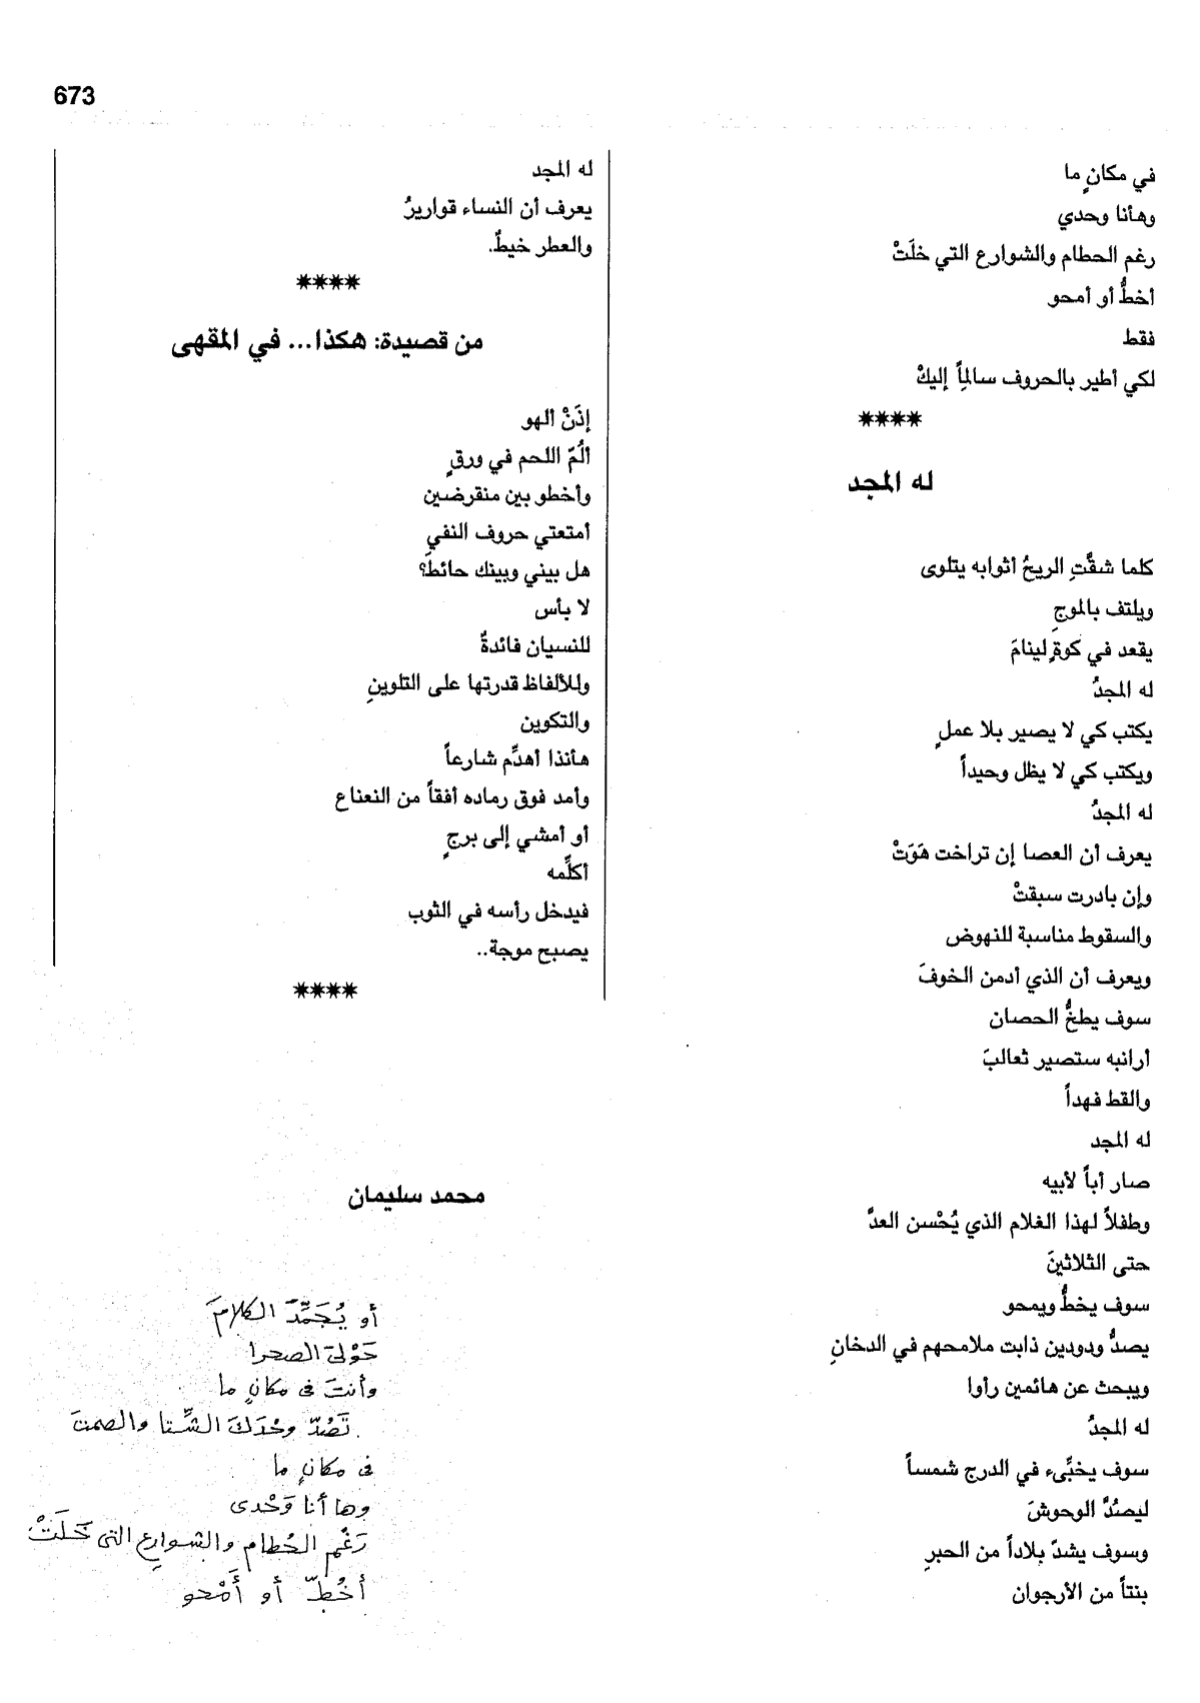 673
في مكانٍ ما
وهأنا وحدي
رغم الحطام والشوارع التي خلَتْ
أخطُّ أو أمحو
فقط
لكي أطير بالحروف سالماً إليكْ
****
له المجد
كلما شقَّتِ الريحُ أثوابه يتلوى
ويلتف بالموجِ
يقعد في كوةٍ لينامَ
له المجدُ
يكتب كي لا يصير بلا عملٍ
ويكتب كي لا يظل وحيداً
له المجدُ
يعرف أن العصا إن تراخت هَوَتْ
وإن بادرت سبقتْ
والسقوط مناسبة للنهوض
ويعرف أن الذي أدمن الخوفَ
سوف يطخُّ الحصان
أرانبه ستصير ثعالبَ
والقط فهداً
له المجد
صار أباً لأبيه
وطفلاً لهذا الغلام الذي يُحْسن العدَّ
حتى الثلاثينَ
سوف يخطُّ ويمحو
يصدُّ ودودين ذابت ملامحهم في الدخانِ
ويبحث عن هائمين رأوا
له المجدُ
سوف يخبِّىء في الدرج شمساً
ليصدَّ الوحوشَ
وسوف يشدّ بلاداً من الحبرِ
بنتاً من الأرجوان
له المجد
يعرف أن النساء قواريرُ
والعطر خيطٌ.
****
من قصيدة: هكذا... في المقهى
إذَنْ ألهو
ألُمّ اللحم في ورقٍ
وأخطو بين منقرضين
أمتعتي حروف النفيِ
هل بيني وبينك حائطٌ؟
لا بأس
للنسيان فائدةٌ
وللألفاظ قدرتها على التلوينِ
والتكوين
هأنذا أهدِّم شارعاً
وأمد فوق رماده أفقاً من النعناع
أو أمشي إلى برجٍ
أكلِّمه
فيدخل رأسه في الثوب
يصبح موجة..
****
محمد سليمان
أو يُجَمِّدَ الكلامَ
حَوْلىَ الصحرا
وأنتَ فى مكانٍ ما
تَصُدّ وحْدَكَ الشِّتا والصمتَ
فى مكانٍ ما
وها أنا وَحْدى
رَغْم الحُطام والشوارعِ التى خَلَتْ
أخُطّ أو أَمْحو